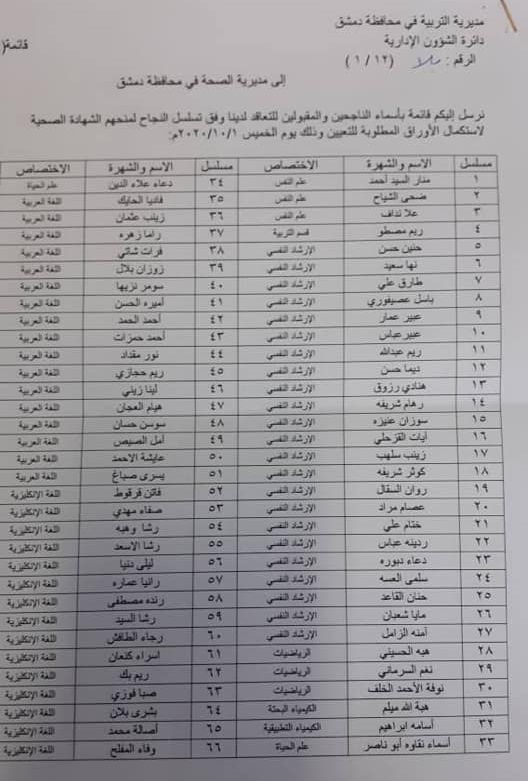 مديرية التربية في محافظة دمشق
دائرة الشؤون الإدارية
قائمة(
الرقم: (١/١٢)
إلى مديرية الصحة في محافظة دمشق
نرسل إليكم قائمة بأسماء الناجحين والمقبولين للتعاقد لدينا وفق تسلسل النجاح لمنحهم الشهادة الصحية
لاستكمال الأوراق المطلوبة للتعيين وذلك يوم الخميس ٢٠٢٠/١٠/١م:
مسلسل الاسم والشهرة الاختصاص مسلسل الاسم والشهرة الاختصاص
١ منار السيد أحمد علم النفس ٣٤ دعاء علاء الدين علم الحياة
٢ ضحى الشياح علم النفس ٣٥ فاديا الحايك اللغة العربية
٣ علا نداف علم النفس ٣٦ زينب عثمان اللغة العربية
٤ ريم مصطو قسم التربية ٣٧ راما زهره اللغة العربية
٥ حنين حسن الإرشاد النفسي ٣٨ فرات شاتي اللغة العربية
٦ نها سعيد الإرشاد النفسي ٣٩ زوزان بلال اللغة العربية
٧ طارق علي الإرشاد النفسي ٤٠ سومر نزيها اللغة العربية
٨ باسل عصيفوري الإرشاد النفسي ٤١ أميره الحسن اللغة العربية
٩ عبير عمار الإرشاد النفسي ٤٢ أحمد الحمد اللغة العربية
١٠ عبير عباس الإرشاد النفسي ٤٣ أحمد حمزات اللغة العربية
١١ ريم عبدالله الإرشاد النفسي ٤٤ نور مقداد اللغة العربية
١٢ ديما حسن الإرشاد النفسي ٤٥ ريم حجازي اللغة العربية
١٣ هنادي رزوق الإرشاد النفسي ٤٦ لينا زيني اللغة العربية
١٤ رهام شريفه الإرشاد النفسي ٤٧ هيام العجان اللغة العربية
١٥ سوزان عنيزه الإرشاد النفسي ٤٨ سوسن حسان اللغة العربية
١٦ آيات القزحلي الإرشاد النفسي ٤٩ أمل الصيص اللغة العربية
١٧ زينب سلهب الإرشاد النفسي ٥٠ عايشة الاحمد اللغة العربية
١٨ كوثر شريفه الإرشاد النفسي ٥١ يسرى صباغ اللغة العربية
١٩ روان السقال الإرشاد النفسي ٥٢ فاتن قرقوط اللغة الإنكليزية
٢٠ عصام مراد الإرشاد النفسي ٥٣ صفاء مهدي اللغة الإنكليزية
٢١ ختام علي الإرشاد النفسي ٥٤ رشا وهبه اللغة الإنكليزية
٢٢ ردينه عباس الإرشاد النفسي ٥٥ رشا الاسعد اللغة الإنكليزية
٢٣ دعاء دبوره الإرشاد النفسي ٥٦ ليلى دنيا اللغة الإنكليزية
٢٤ سلمى العسه الإرشاد النفسي ٥٧ رانيا عماره اللغة الإنكليزية
٢٥ حنان القاعد الإرشاد النفسي ٥٨ رنده مصطفى اللغة الإنكليزية
٢٦ مايا شعبان الإرشاد النفسي ٥٩ رشا السيد اللغة الإنكليزية
٢٧ آمنه الزامل الإرشاد النفسي ٦٠ رجاء الطافش اللغة الإنكليزية
٢٨ هبه الحسيني الرياضيات ٦١ اسراء كنعان اللغة الإنكليزية
٢٩ نغم السرماني الرياضيات ٦٢ ريم بك اللغة الإنكليزية
٣٠ نوفة الأحمد الخلف الرياضيات ٦٣ صبا فوزي اللغة الإنكليزية
٣١ هبة الله ميلم الكيمياء البحتة ٦٤ بشرى بلان اللغة الإنكليزية
٣٢ أسامه ابراهيم الكيمياء التطبيقية ٦٥ أصالة محمد اللغة الإنكليزية
٣٣ أسماء نقاوه أبو ناصر علم الحياة ٦٦ وفاء المفلح اللغة الإنكليزية